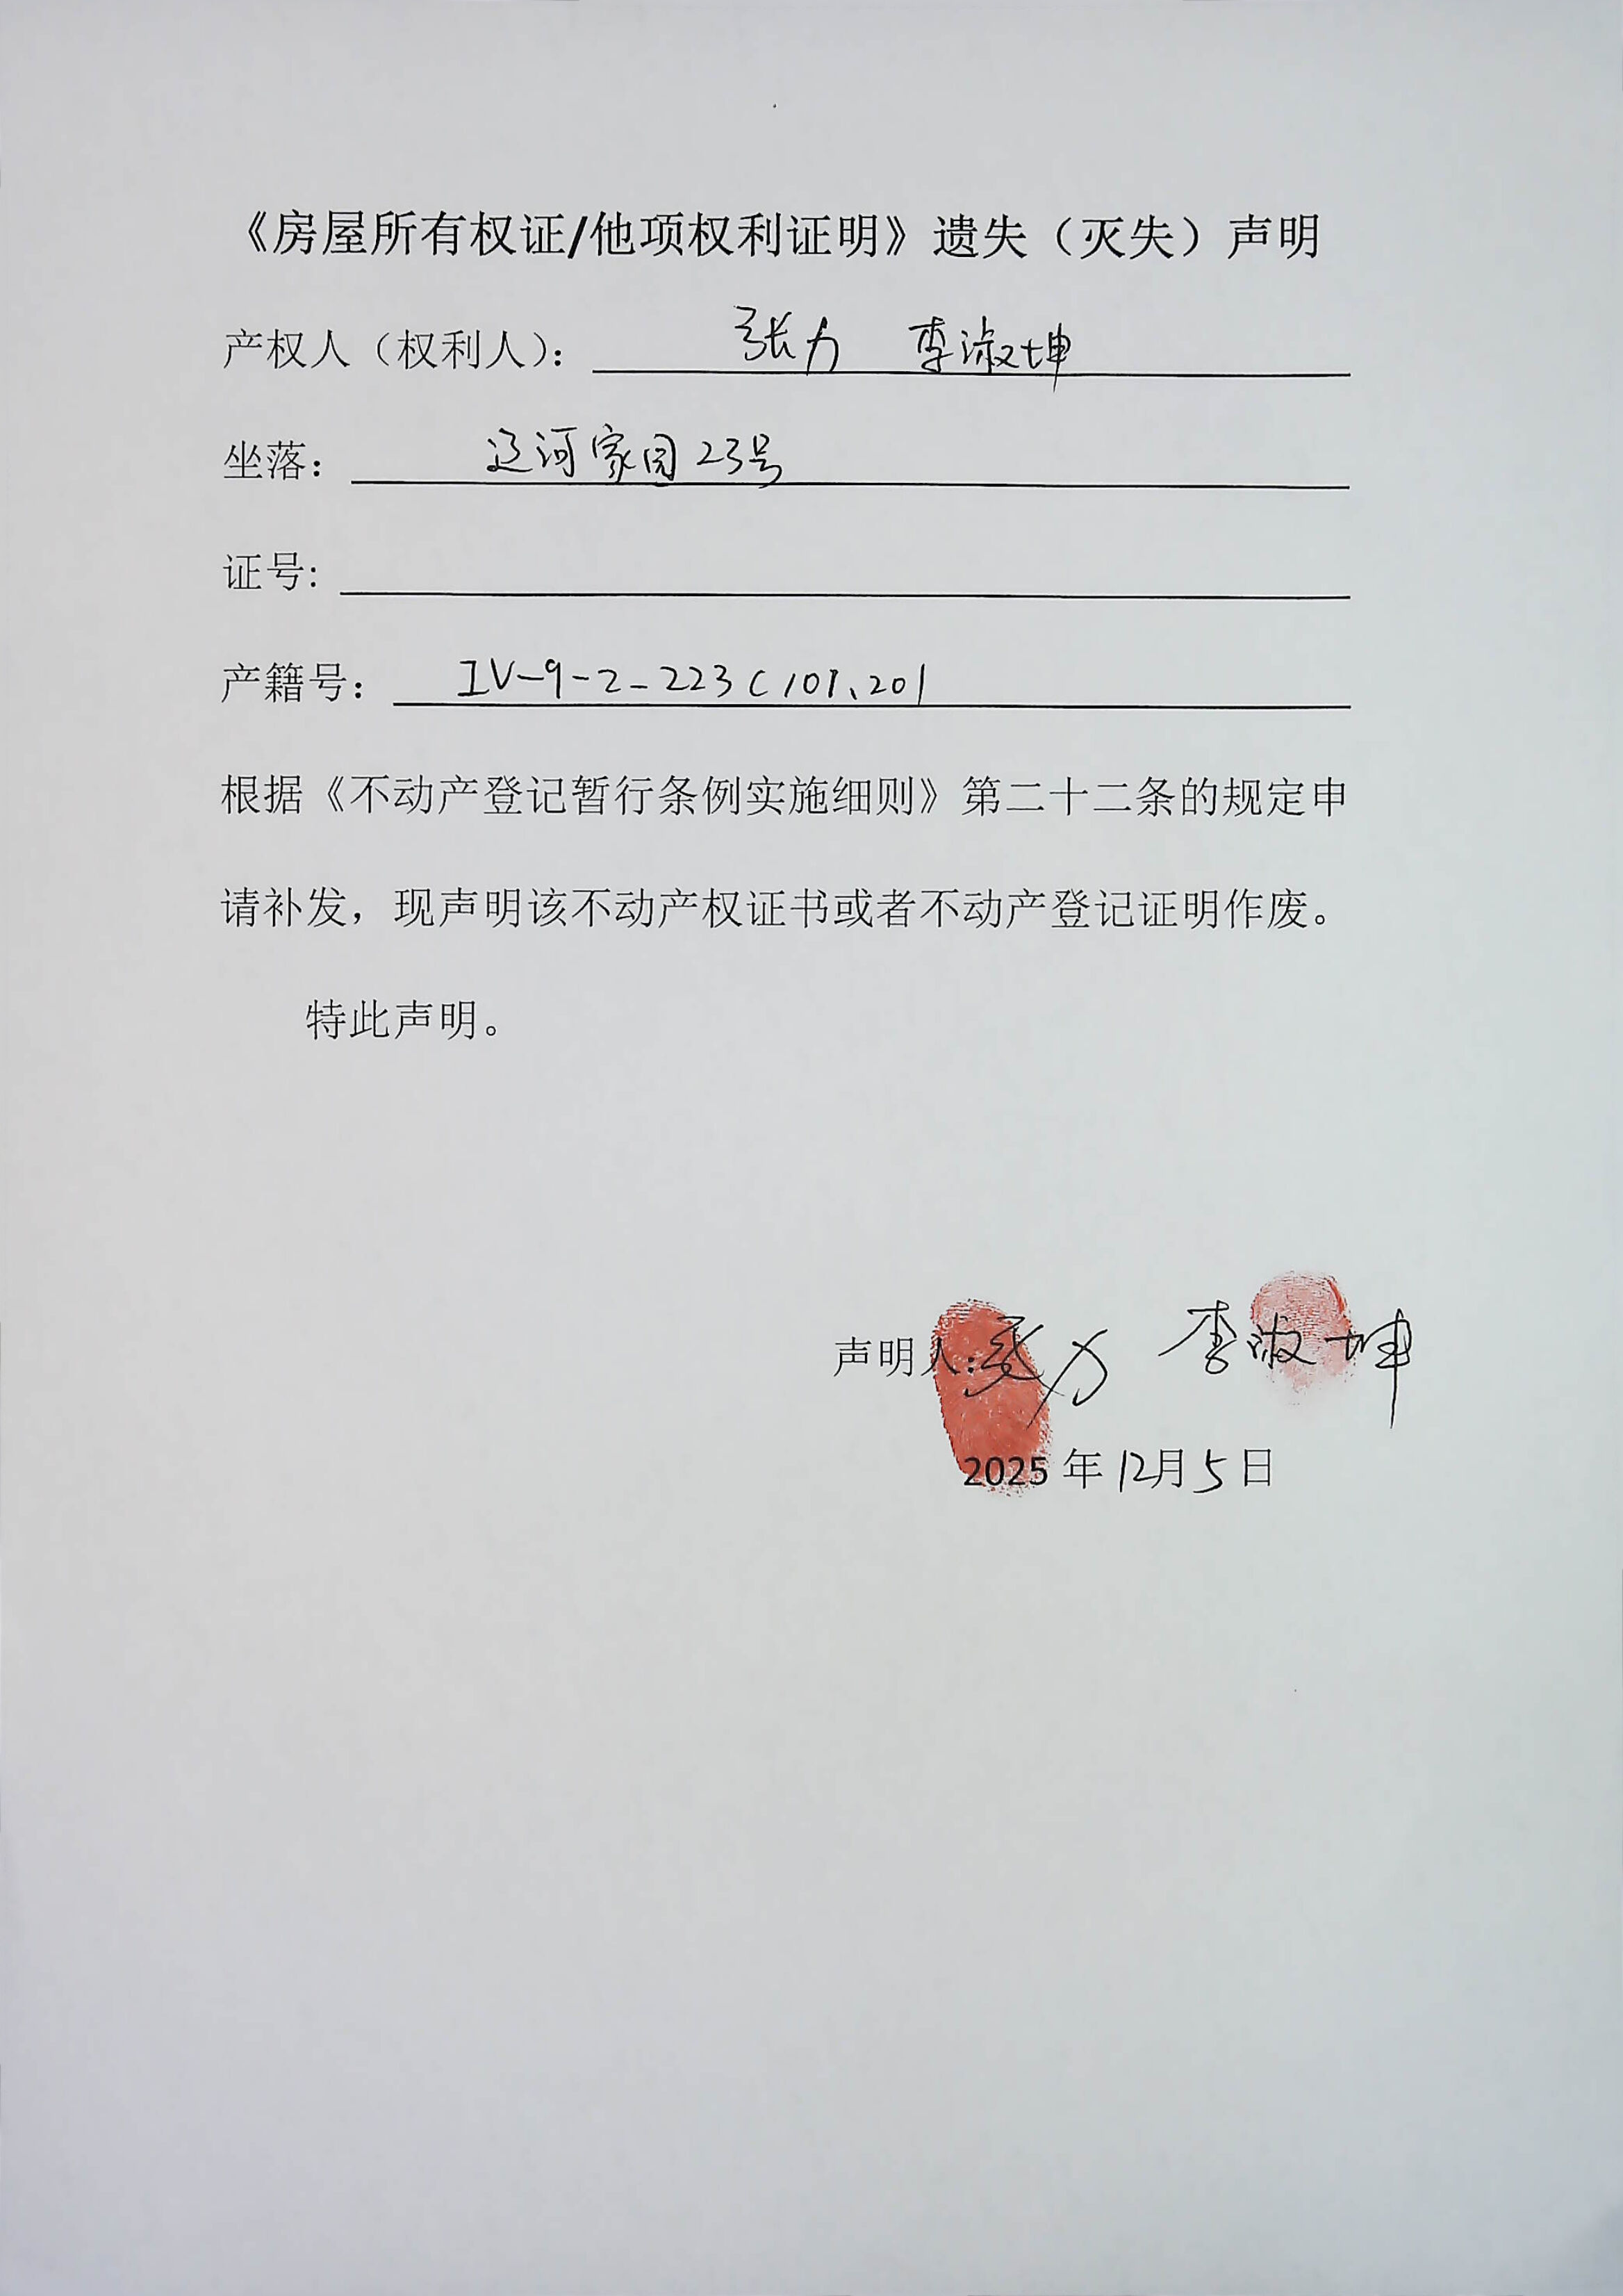 《房屋所有权证/他项权利证明》遗失（灭失）声明
产权人（权利人）： 张力 李淑坤
坐落： 辽河家园23号
证号:
产籍号： IV-9-2-223C101、201
根据《不动产登记暂行条例实施细则》第二十二条的规定申
请补发，现声明该不动产权证书或者不动产登记证明作废。
特此声明。
声明人：张力 李淑坤
2025年12月5日